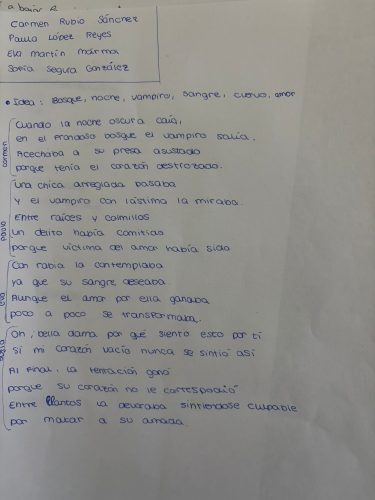 a bajar
Carmen Rubio Sánchez
Paula López Reyes
Eva Martín Mármol
Sofía Segura González
• Idea: Bosque, noche, vampiro, sangre, cuervo, amor
carmen
Cuando la noche oscura caía,
en el frondoso bosque el vampiro salía.
Acechaba a su presa asustado
porque tenía el corazón destrozado.
paula
Una chica arreglada pasaba
y el vampiro con lástima la miraba.
Entre raíces y colmillos
un delito había cometido
porque víctima del amor había sido
eva
Con rabia la contemplaba
ya que su sangre deseaba.
Aunque el amor por ella ganaba
poco a poco se transformaba.
sofía
Oh, bella dama por qué siento esto por ti
si mi corazón vacío nunca se sintió así
Al final, la tentación ganó
porque su corazón no le correspodió
Entre llantos la devoraba sintiendose culpable
por matar a su amada.